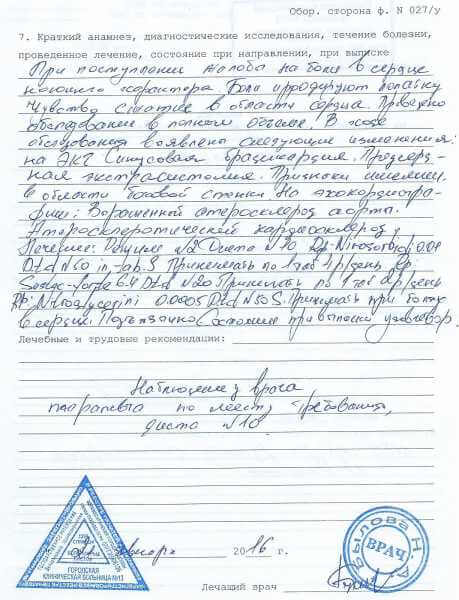 Обор. сторона ф. N 027/у
7. Краткий анамнез, диагностические исследования, течение болезни,
проведенное лечение, состояние при направлении, при выписке
При поступлении жалобы на боли в сердце
ноющего характера. Боли иррадируют лопатку
Чувство сжатие в области сердца. Проведено
обследование в полном объеме. В ходе
обследования выявлены следующие изменения:
на ЭКГ Синусовая брадикардия. Предсерд-
ная экстрасистолия. Признаки ишемии
в области боковой стенки На эхокардиогра-
фии: Выраженный атеросклероз аорты.
Атеросклеротический кардиосклероз
Лечение: Режим №2 Диета №10 Rp: Nitrosorbidi 0.01
D.t.d N50 in tab. S. Принимать по 1 таб 4 р/день Rp
6.4 D.t.d N20 Принимать по 1 таб 2 р/день
Rp: Nitroglycerini 0.0005 D.t.d N50 S. Принимать при болях
в сердце. Под язычно Состояние при выписки удовлетвор.
Лечебные и трудовые рекомендации:
Наблюдение у врача
терапевта по месту требования,
диета №10
января 2016 г.
ГОРОДСКАЯ
КЛИНИЧЕСКАЯ БОЛЬНИЦА №13
ВРАЧ
Лечащий врач